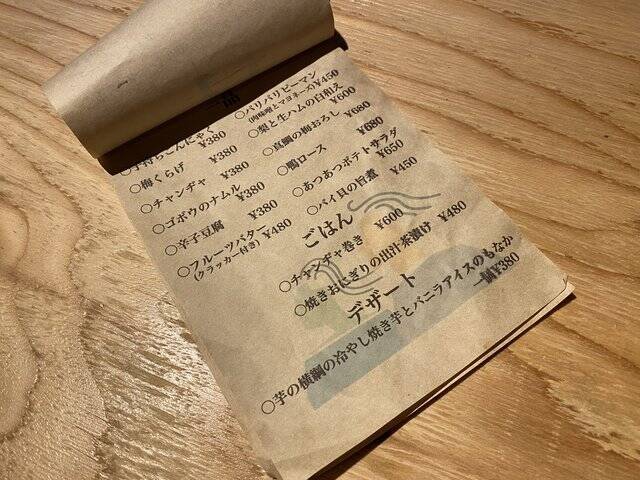 一品
子持ちこんにゃく ¥380
○梅くらげ ¥380
○チャンヂャ ¥380
○ゴボウのナムル ¥380
○辛子豆腐 ¥380
○フルーツバター ¥480
(クラッカー付き)
○パリパリピーマン ¥450
(肉味噌とマヨネーズ)
○梨と生ハムの白和え ¥600
○真鯛の梅おろし ¥680
○鴨ロース ¥680
○あつあつポテトサラダ ¥650
○バイ貝の旨煮 ¥450
ごはん
○チャンヂャ巻き ¥600
○焼きおにぎりの出汁茶漬け ¥480
デザート
○芋の横綱の冷やし焼き芋とバニラアイスのもなか
一個¥380